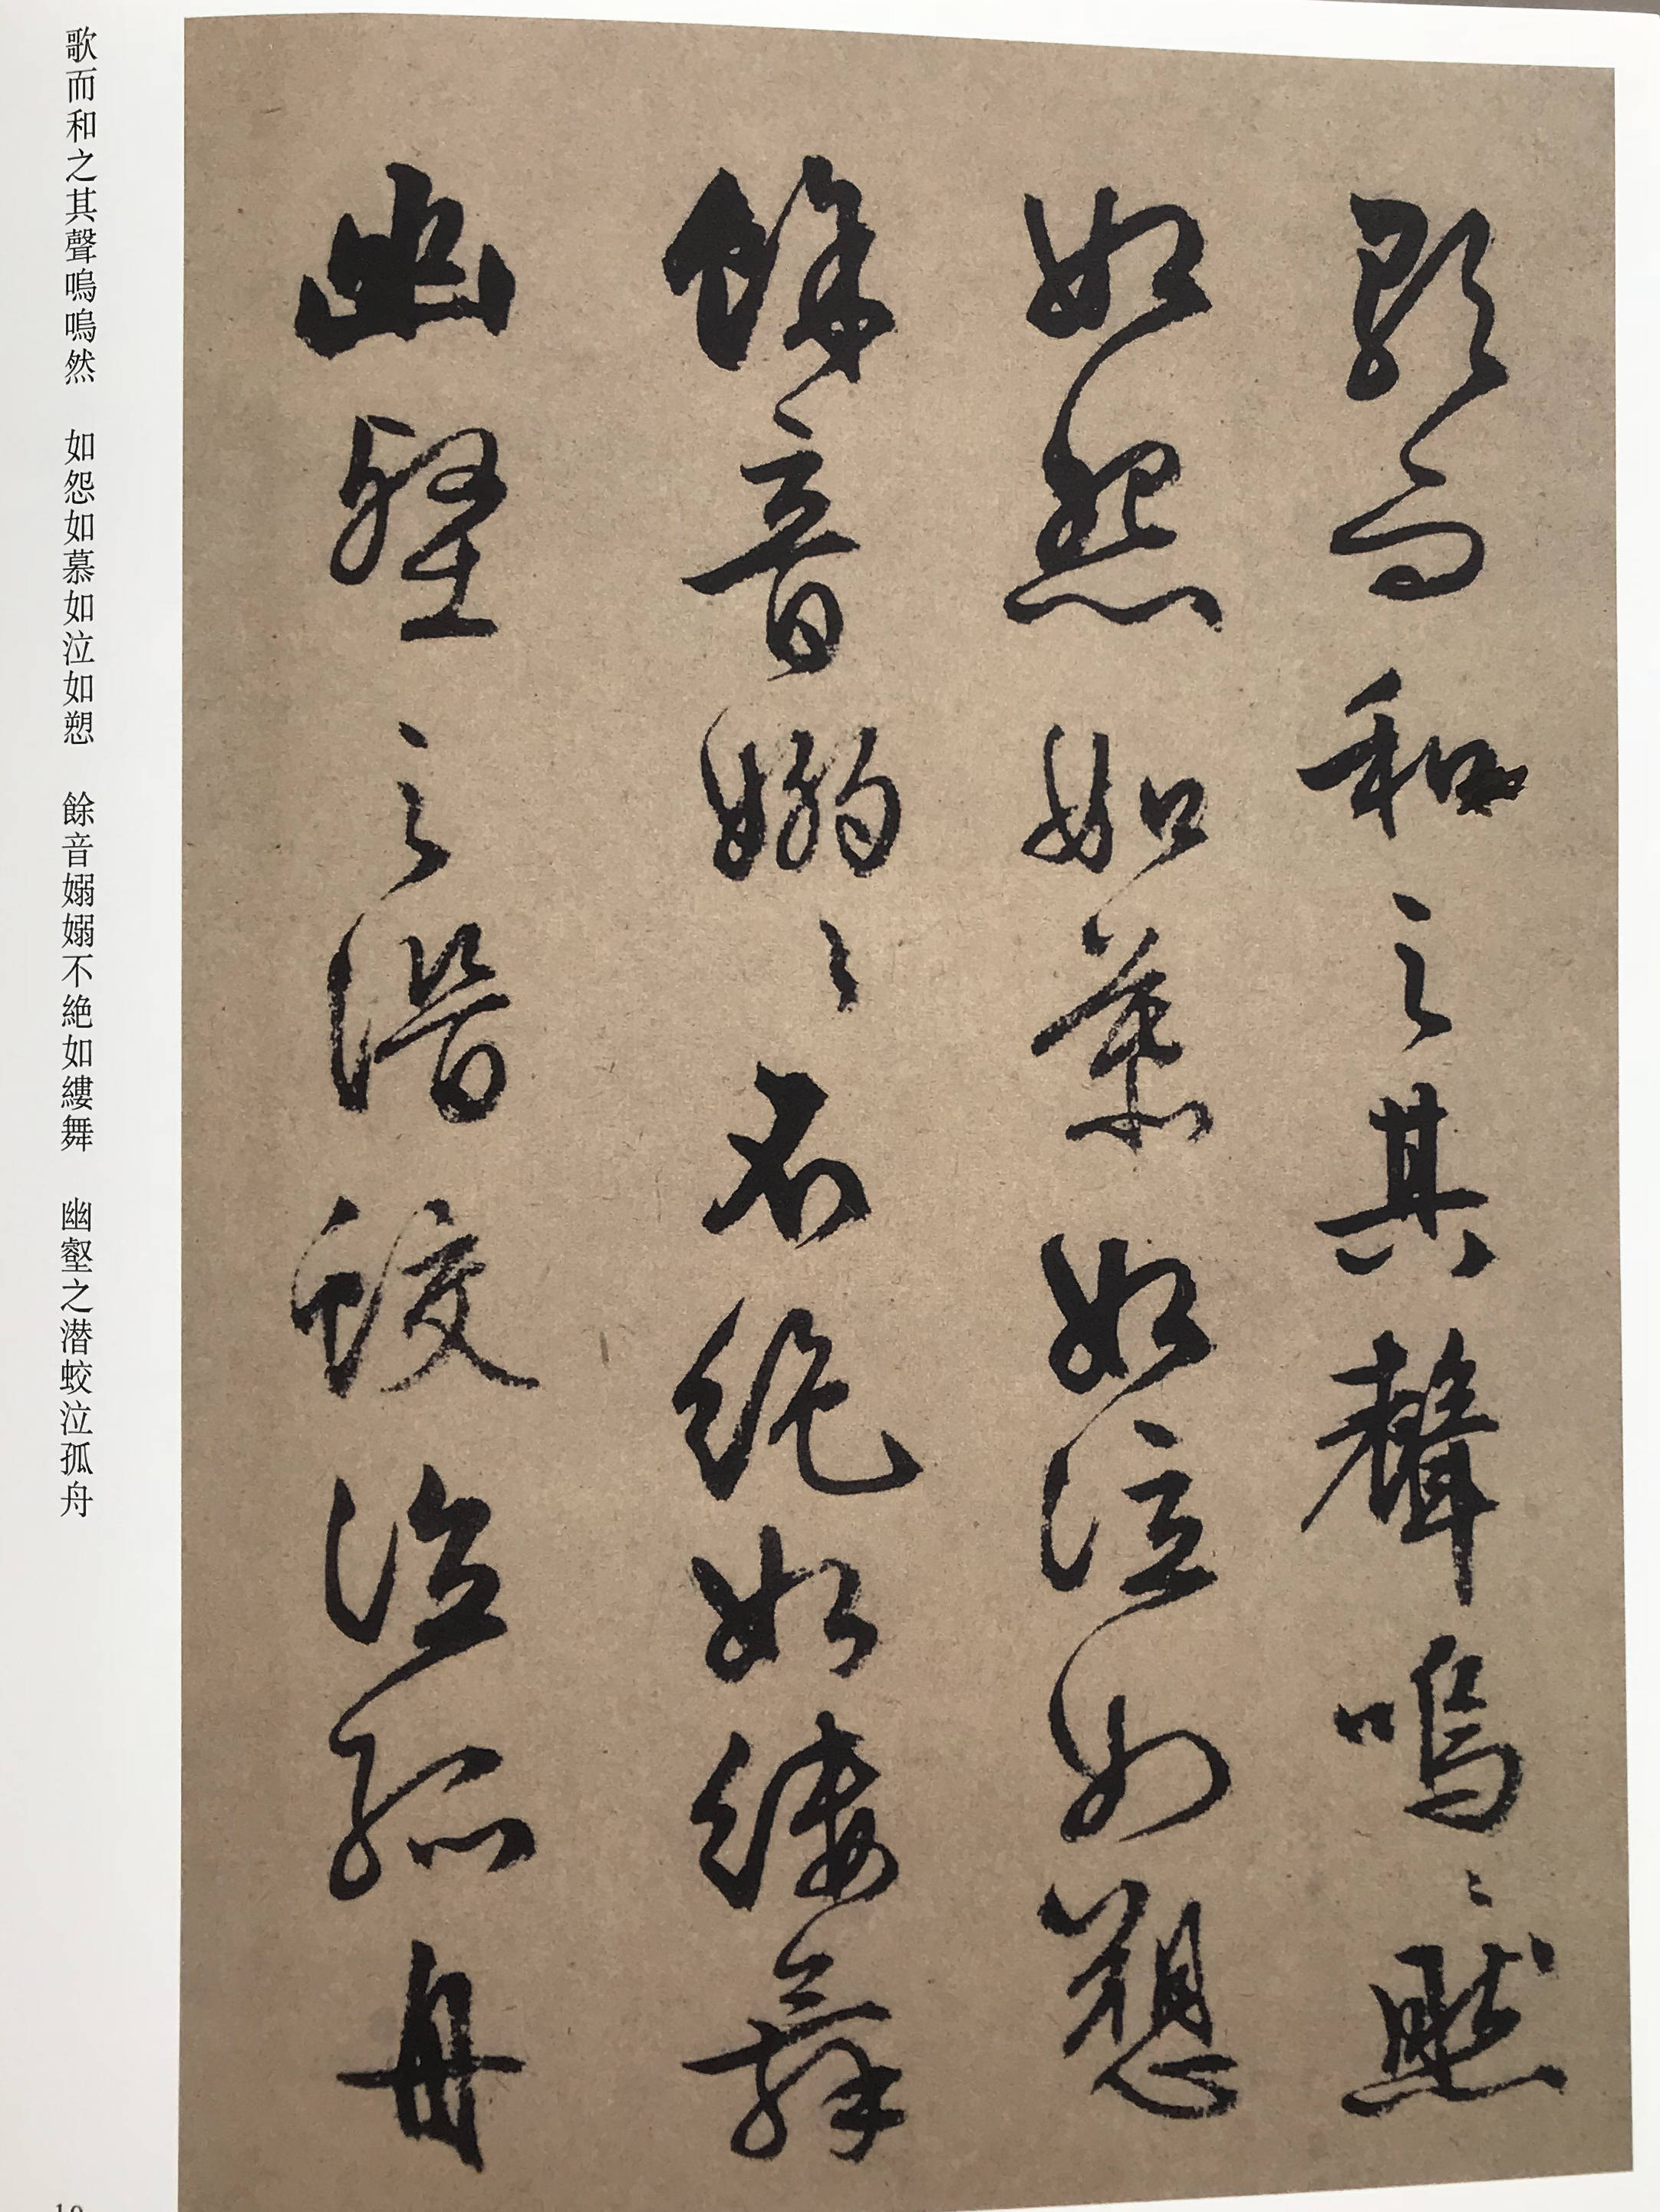 歌而和之其聲嗚〻然
如怨如慕如泣如愬
餘音嫋〻不絕如縷舞
幽壑之潛蛟泣孤舟
歌而和之其聲嗚嗚然　如怨如慕如泣如愬　餘音嫋嫋不絶如縷舞　幽壑之潜蛟泣孤舟